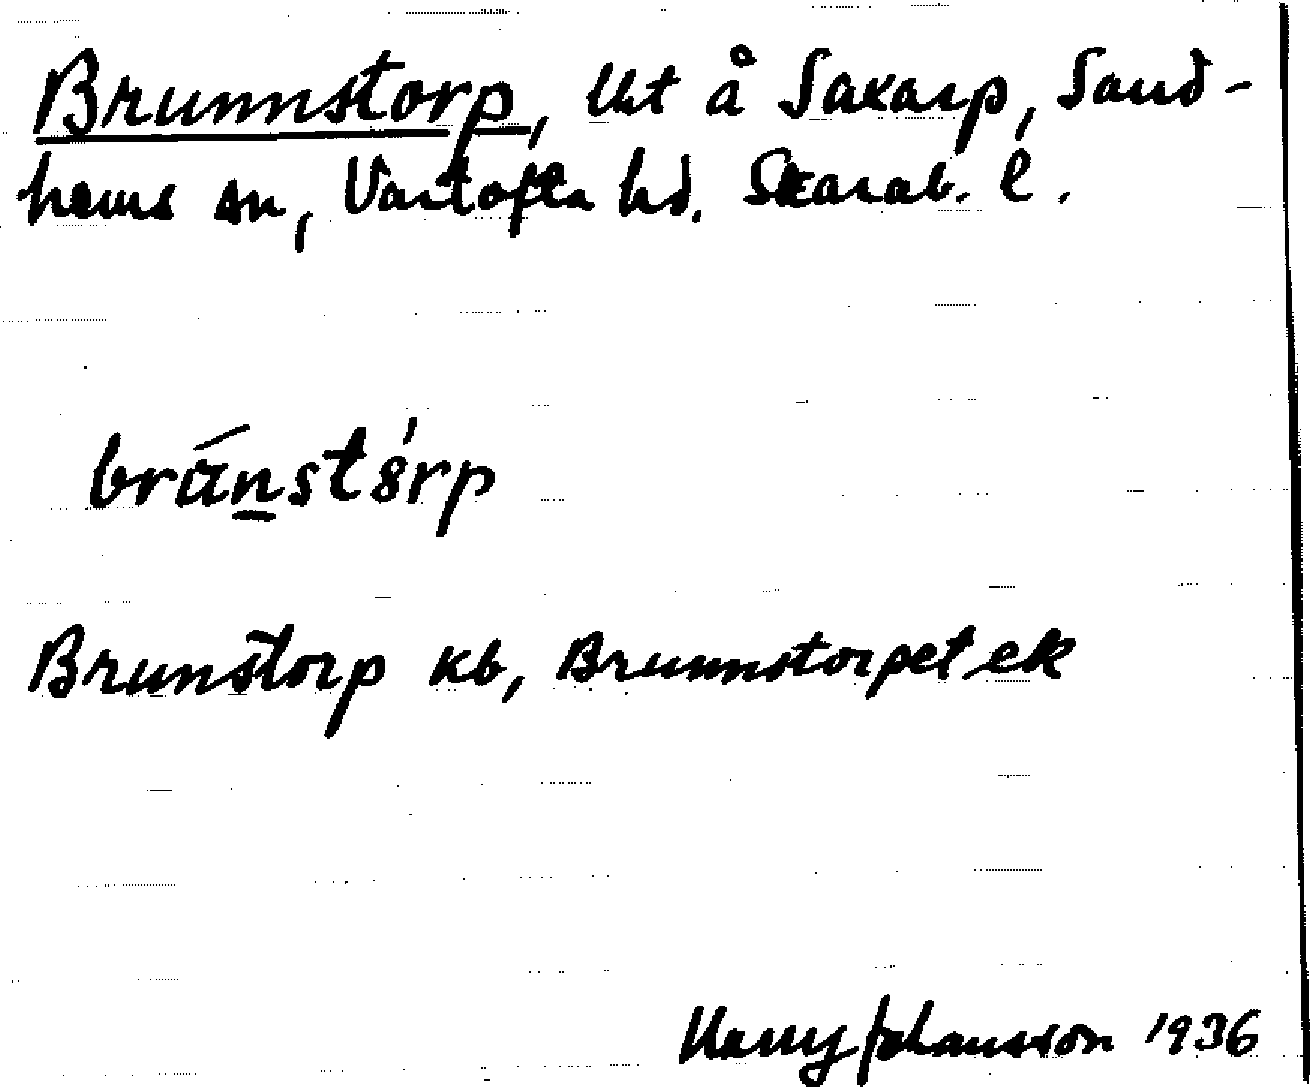 Brunnstorp, Utt å Saxarp, Sand-
hems sn, Vartofta hd. Skarab. l.
bránstórp
Brunstorp kb, Brunnstorpet ek
Harry Johansson 1936